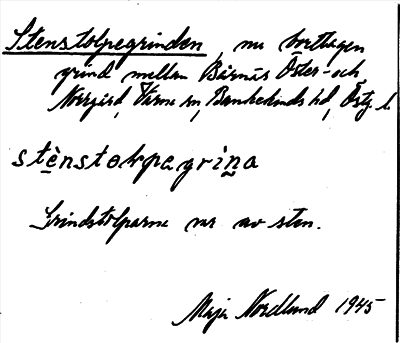 Stenstolpegrinden, nu borttagen
grind mellan Bårnäs Öster- och
Norrgård, Värna sn, Bankekinds hd, Östg. l.
stènstokpagrina
Grindstolparna var av sten.
Maja Nordlund 1945